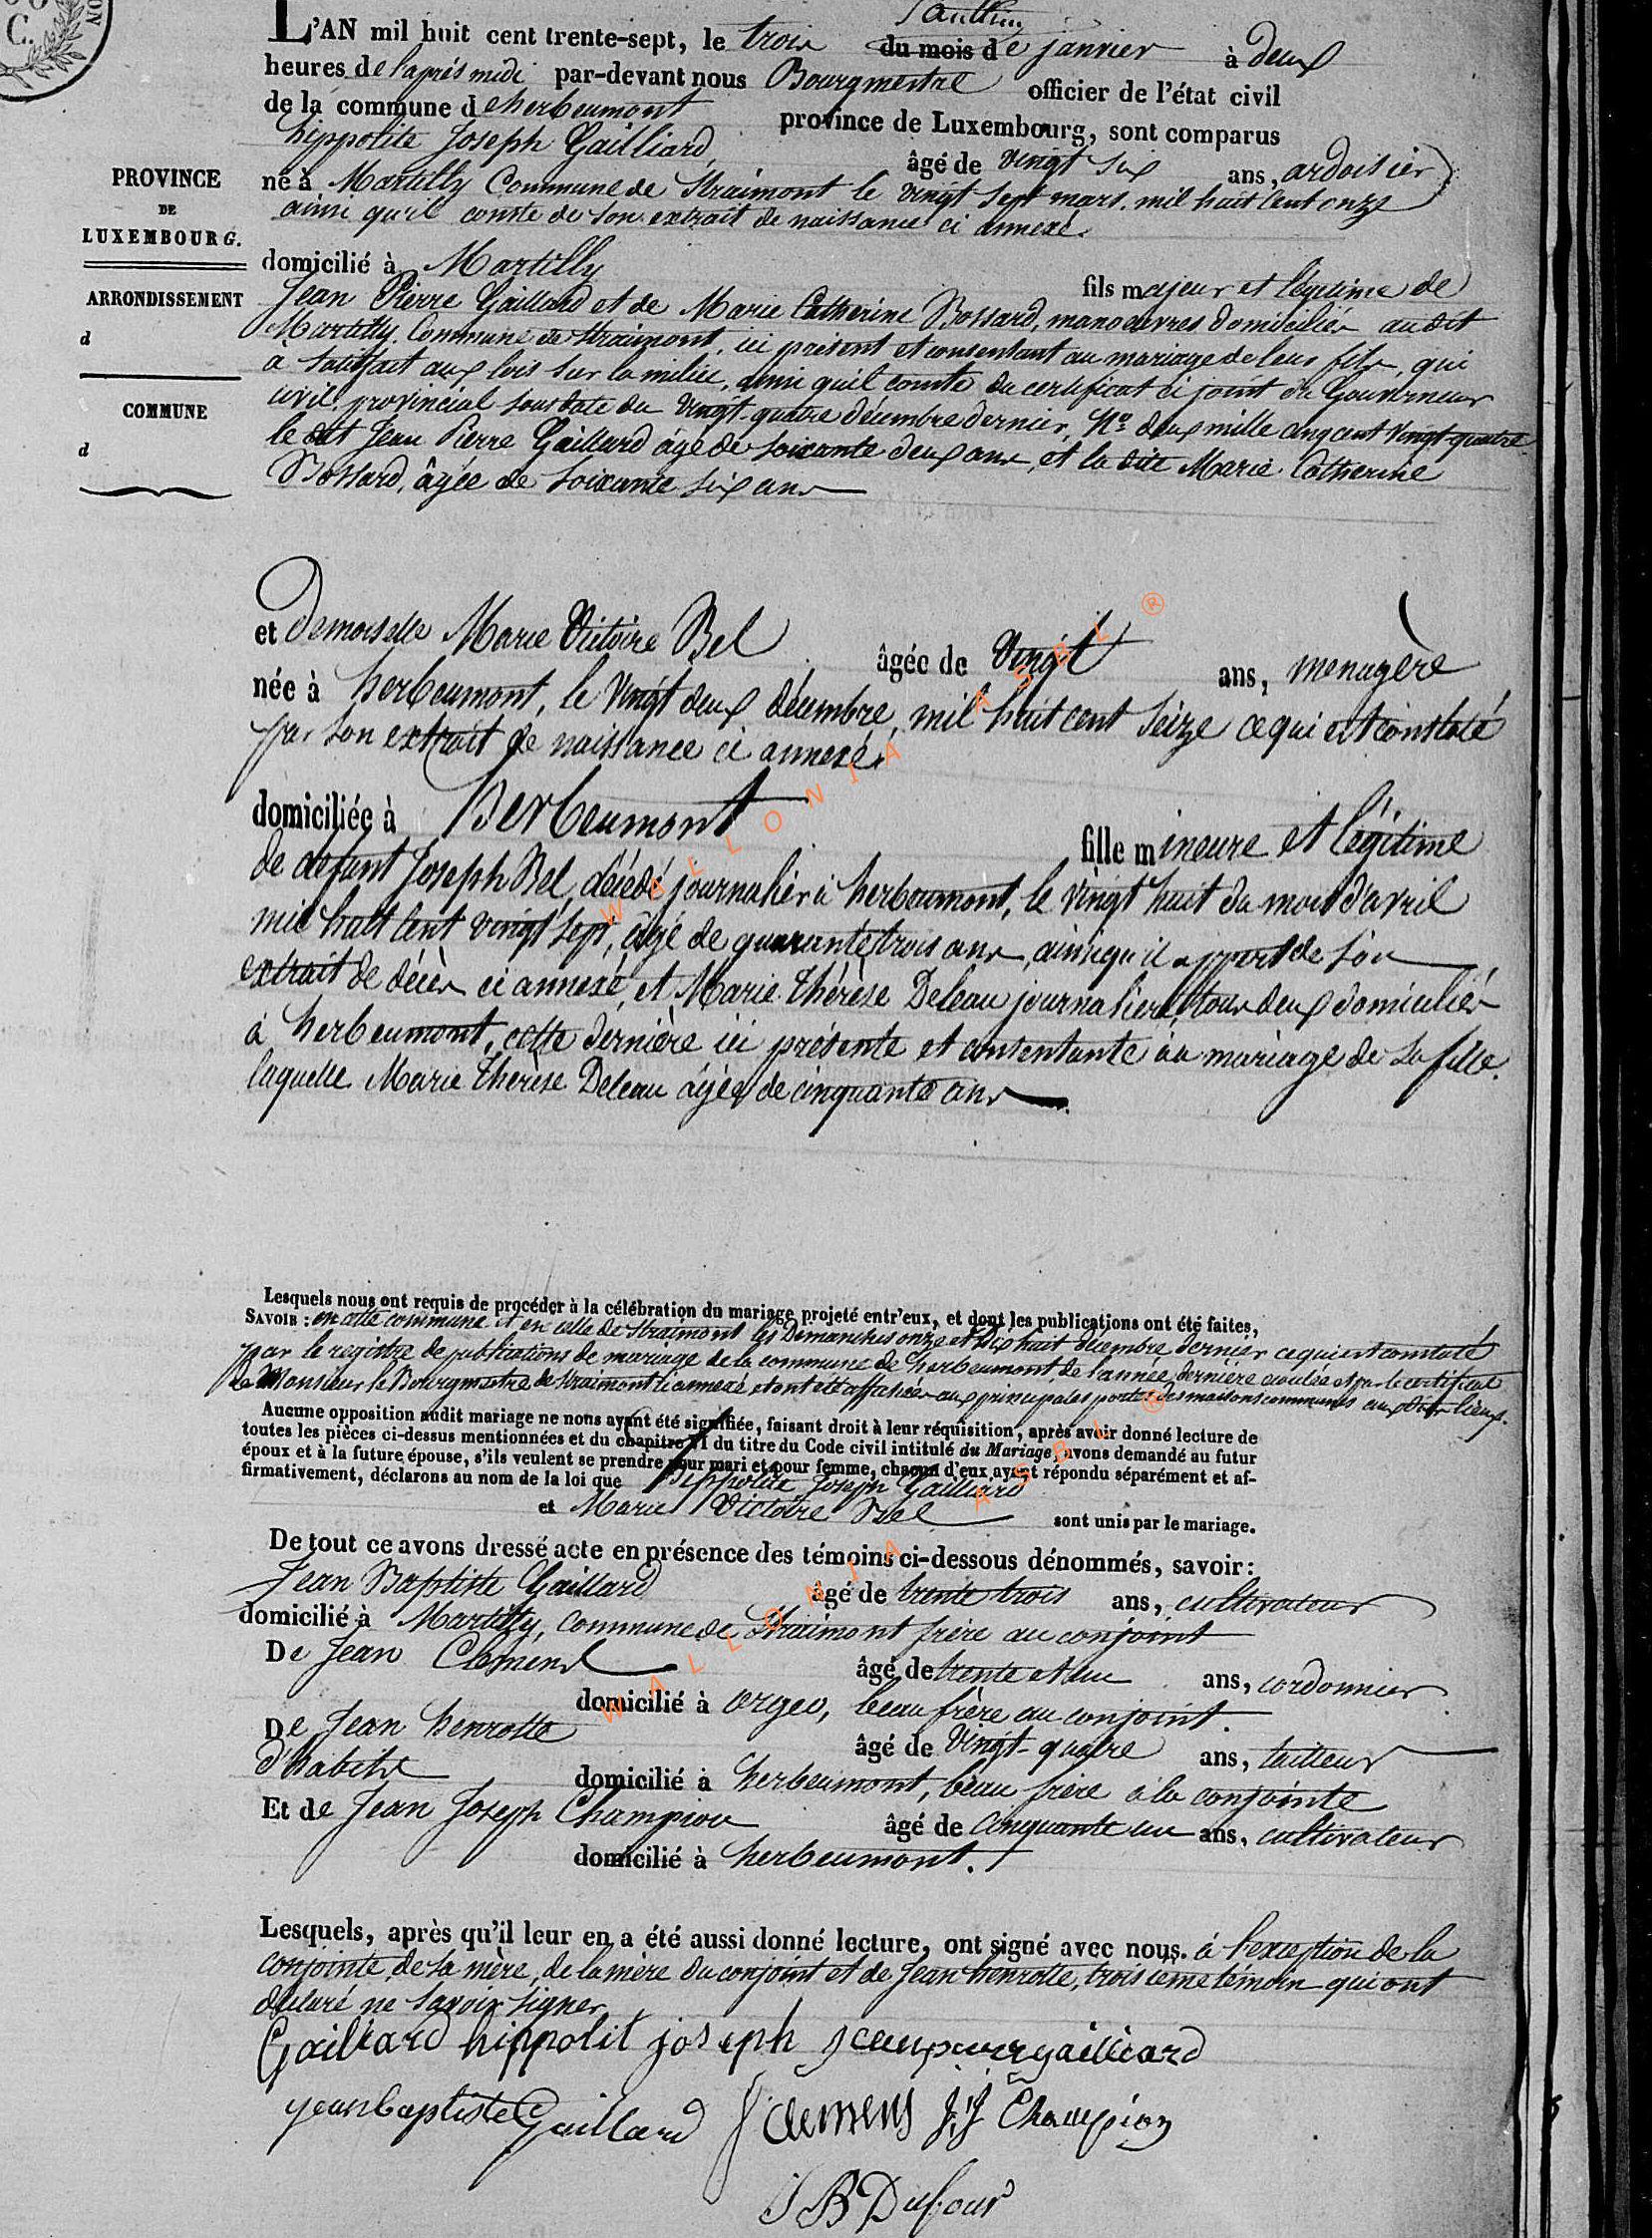 L'AN mil huit cent trente-sept, le trois du mois de janvier à deux
heures de l'après midi par-devant nous Bourgmestre officier de l'état civil
de la commune d'herbeumont province de Luxembourg, sont comparus
hippolite Joseph Gailliard, âgé de vingt six ans, ardoisier
né à Martilly Commune de Straimont le vingt sept mars mil huit cent onze
ainsi qu'il conste de son extrait de naissance ci annexé.
PROVINCE
DE
LUXEMBOURG.
ARRONDISSEMENT
d
COMMUNE
d
domicilié à Martilly fils majeur et légitime de
Jean Pierre Gaillard et de Marie Catherine Bossard, manoeuvres domiciliés audit
Martilly Commune de Straimont, ici présent et consentant au mariage de leur fils, qui
a satisfait aux lois sur la milice, ainsi qu'il conste du certificat ci joint du Gouverneur
civil provincial sous date du vingt-quatre décembre dernier, No. deux mille cinq cent vingt-quatre
le dit Jean Pierre Gaillard âgé de soixante deux ans, et la dite Marie Catherine
Bossard, âgée de soixante six ans
et Demoiselle Marie Victoire Bel âgée de vingt ans, menagère
née à herbeumont, le vingt deux décembre, mil huit cent seize ce qui est constaté
par son extrait de naissance ci annexé.
domiciliée à Herbeumont fille mineure et légitime
de defunt Joseph Bel, décédé journalier à herbeumont, le vingt huit du mois d'avril
mil huit cent vingt sept, âgé de quarante trois ans, ainsi qu'il appert de son
extrait de décès ci annexé, et Marie Thérèse Deleau journalière, tous deux domiciliés
à herbeumont, cette dernière ici présente et consentante au mariage de sa fille.
laquelle Marie Thérèse Deleau âgée de cinquante ans
Lesquels nous ont requis de procéder à la célébration du mariage projeté entr'eux, et dont les publications ont été faites,
SAVOIR : en cette commune et en celle de Straimont les Dimanches onze et dix huit décembre dernier ce qui est constaté
par le registre de publications de mariage de la commune de herbeumont, de l'année dernière écoulée et par le certificat
de Monsieur le Bourgmestre de Straimont ci annexé et ont été affichées aux principales portes des maisons communes aux dits lieux.
Aucune opposition audit mariage ne nous ayant été signifiée, faisant droit à leur réquisition, après avoir donné lecture de
toutes les pièces ci-dessus mentionnées et du chapitre VI du titre du Code civil intitulé du Mariage, avons demandé au futur
époux et à la future épouse, s'ils veulent se prendre pour mari et pour femme, chacun d'eux ayant répondu séparément et af-
firmativement, déclarons au nom de la loi que Hippolite Joseph Gailliard
et Marie Victoire Bel sont unis par le mariage.
De tout ce avons dressé acte en présence des témoins ci-dessous dénommés, savoir :
Jean Baptiste Gaillard âgé de trente trois ans, cultivateur
domicilié à Martilly, commune de Straimont frère au conjoint
De Jean Clemens âgé de trente et un ans, cordonnier
domicilié à orgeo, beau frère au conjoint.
De Jean henrotte âgé de vingt-quatre ans, tailleur
d'habits domicilié à herbeumont, beau frère à la conjointe
Et de Jean Joseph Champion âgé de cinquante un ans, cultivateur
domicilié à herbeumont.
Lesquels, après qu'il leur en a été aussi donné lecture, ont signé avec nous. à l'exception de la
conjointe, de sa mère, de la mère du conjoint et de Jean henrotte, troisième témoin qui ont
déclaré ne savoir signer
Gailliard hippolit joseph jeanpierregailliard
jean baptiste Gaillard J Clemens J,J Champion
J B Dufour
WALLONIA ASBL ®
WALLONIA ASBL ®